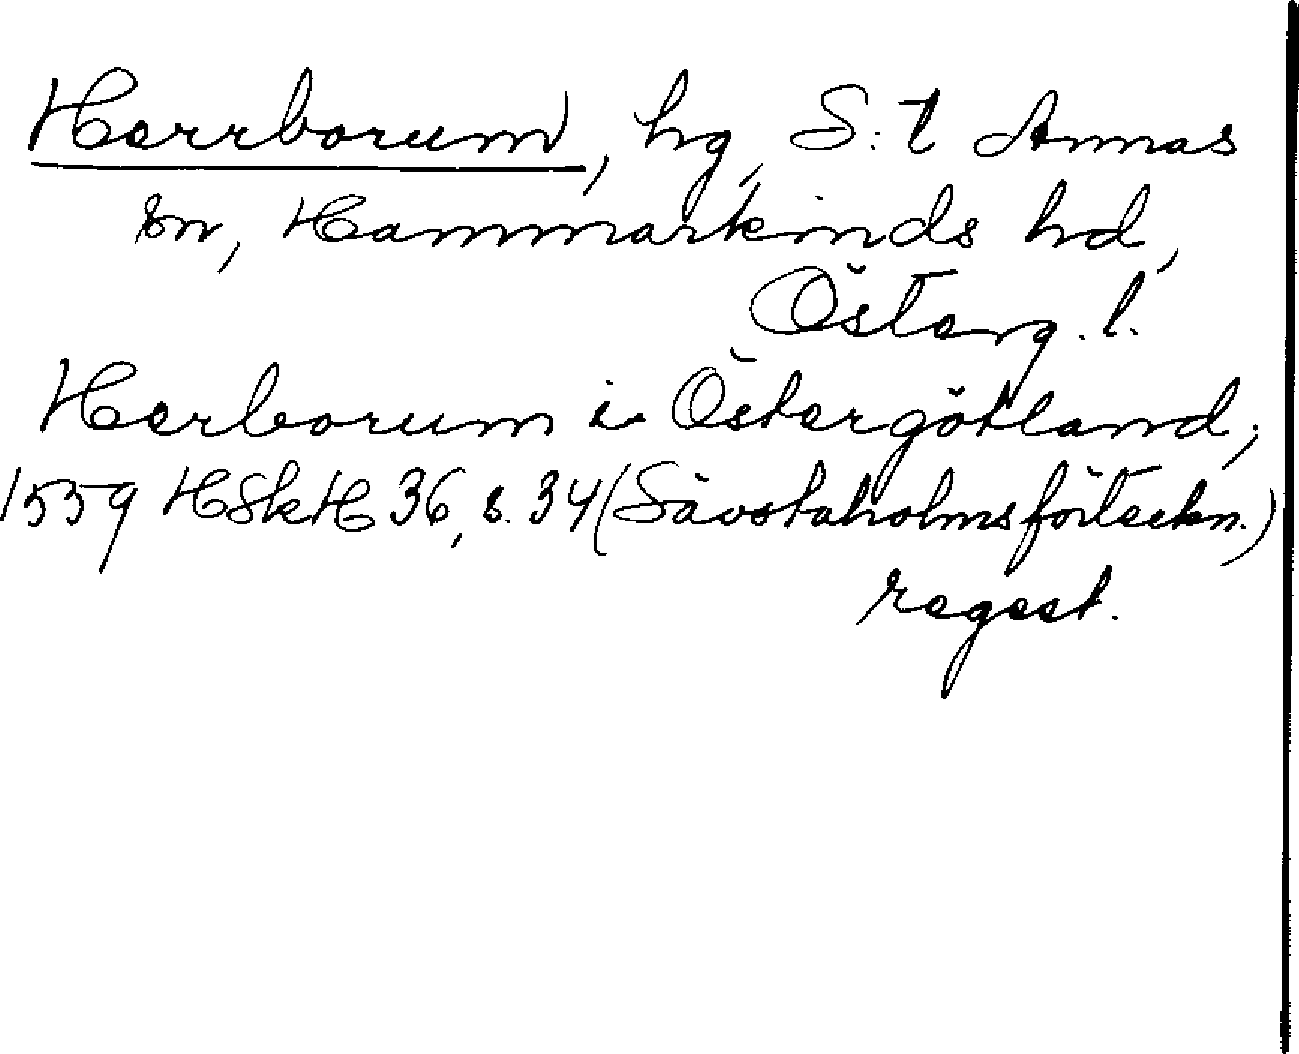 Herrborum, hg, S:t Annas
sn, Hammarkinds hd,
Österg. l.
Herborum i Östergötland;
1559 HSkH 36, s. 34 (Sävstaholmsförteckn.)
regest.